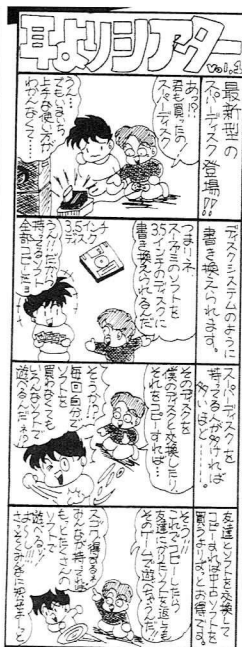 耳よりシアター
vol.1
最新型の
スーパーディスク登場!!
あっ!?
君も買ったの!
スーパーディスク
う…
でもいまいち
上手な使い方が
わかんなくて…
ディスクシステムのように
書き換えられます。
つまりネ
スーファミのソフトを
3.5インチのディスクに
書き換えられるんだ
3.5インチ
ディスク
持ってるソフト
全部コピーしたョ
スーパーディスクを
持ってる人が多ければ
多いほど……。
そのディスクを
僕のディスクと交換したり
それをコピーすれば…
そうか!?
毎回自分で
ソフトを
買わなくても
いろんなソフトで
遊べるんだネ!?
友達とソフトを交換して
コピーすれば中古ソフトを
買うよりずっとお得です。
そう!!
これでコピーしたら
友達にかりたソフトで返しても
そのゲームで遊んちゃうんだ!
みんなが持ってれば
もっとたくさんの
ソフトで
遊べる!!